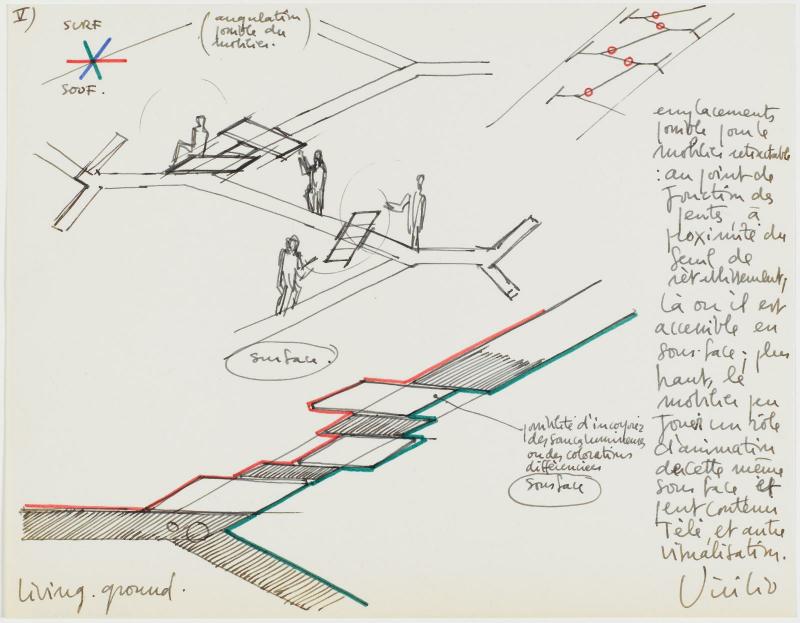 V)
SURF
SOUF.
(angulation
possible du
mobilier.)
emplacements
possible pour le
mobilier retractable
: au point de
Jonction des
pents, à
proximité du
Seuil de
rétablissement,
Là ou il est
accessible en
Sous-face ; plus
haut, le
mobilier peu
Jouer un rôle
d'animation
de cette même
Sous face et
peut contenir
Télé, et autre
visualisation.
Surface.
possibilité d'incorporer
des sources lumineuses
ou des colorations
différenciées
Sousface
Living. ground.
Virilio